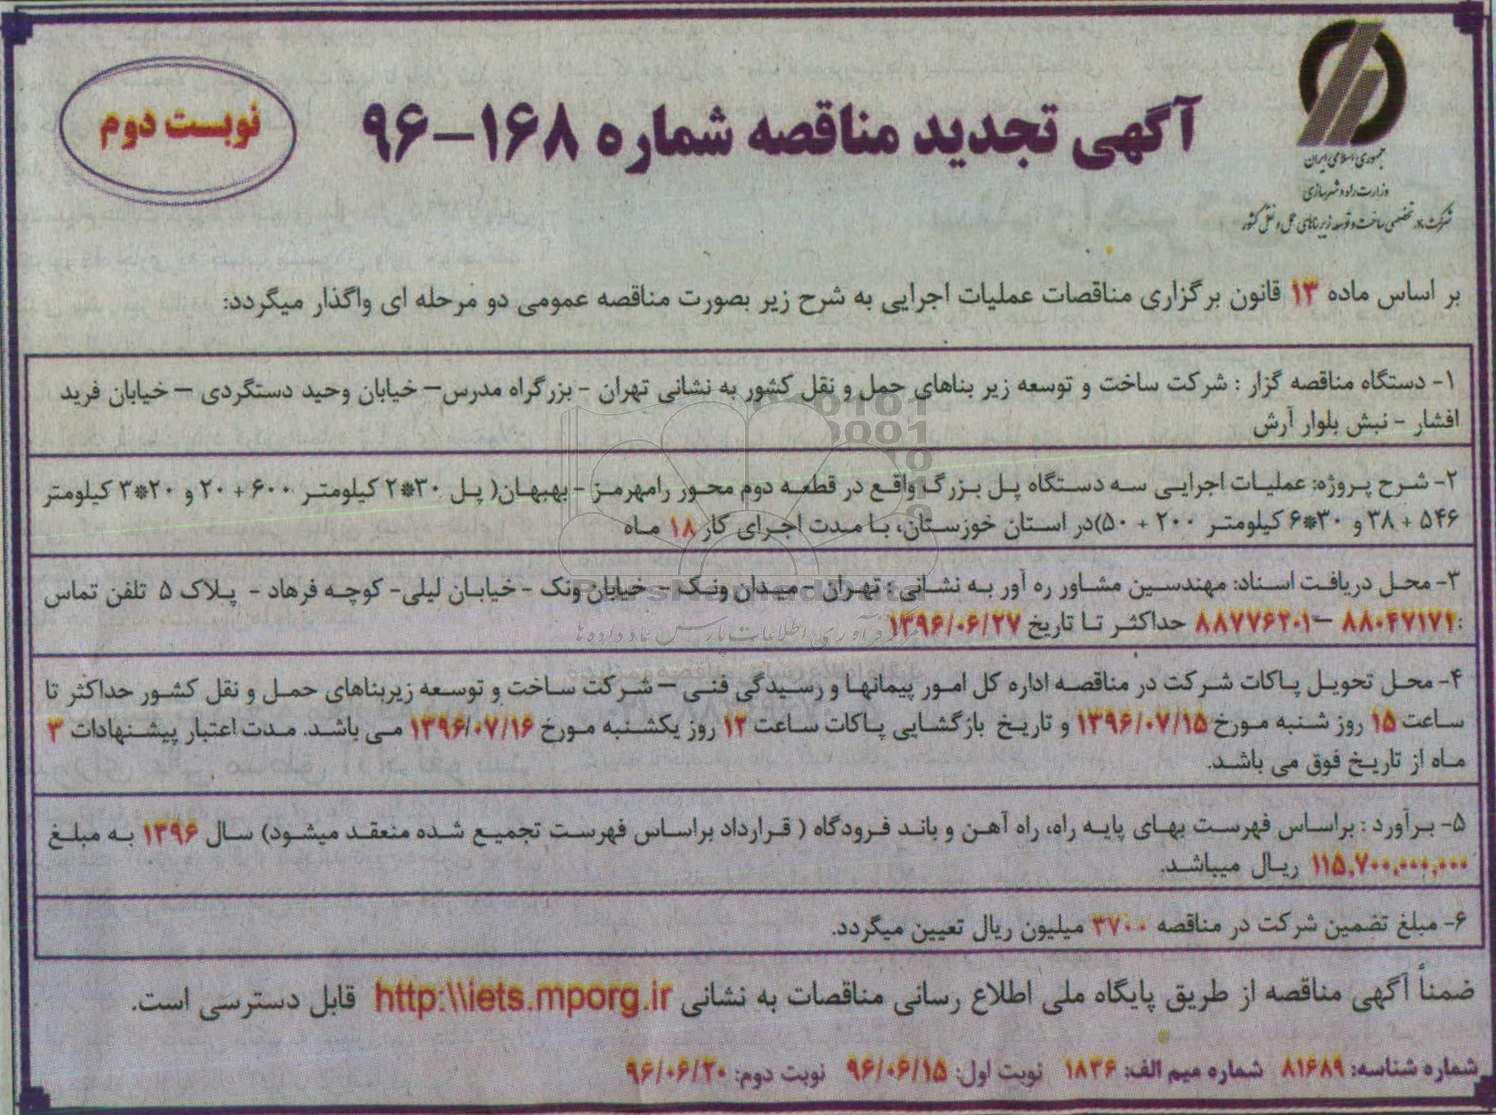 جمهوری اسلامی ایران
وزارت راه و شهرسازی
شرکت مادر تخصصی ساخت و توسعه زیربناهای حمل و نقل کشور
آگهی تجدید مناقصه شماره ۱۶۸-۹۶
نوبت دوم
بر اساس ماده ۱۳ قانون برگزاری مناقصات عملیات اجرایی به شرح زیر بصورت مناقصه عمومی دو مرحله ای واگذار میگردد:
۱- دستگاه مناقصه گزار : شرکت ساخت و توسعه زیر بناهای حمل و نقل کشور به نشانی تهران - بزرگراه مدرس– خیابان وحید دستگردی – خیابان فرید
افشار - نبش بلوار آرش
۲- شرح پروژه: عملیات اجرایی سه دستگاه پل بزرگ واقع در قطعه دوم محور رامهرمز - بهبهان( پل ۳۰*۲ کیلومتر ۶۰۰ + ۲۰ و ۲۰*۳ کیلومتر
۵۴۶ + ۳۸ و ۳۰*۶ کیلومتر ۲۰۰ + ۵۰)در استان خوزستان، با مدت اجرای کار ۱۸ ماه
۳- محل دریافت اسناد: مهندسین مشاور ره آور به نشانی : تهران - میدان ونک - خیابان ونک - خیابان لیلی- کوچه فرهاد - پلاک ۵ تلفن تماس
:۸۸۰۴۷۱۷۴ –۸۸۷۷۶۲۰۱ حداکثر تا تاریخ ۱۳۹۶/۰۶/۲۷
۴- محل تحویل پاکات شرکت در مناقصه اداره کل امور پیمانها و رسیدگی فنی – شرکت ساخت و توسعه زیربناهای حمل و نقل کشور حداکثر تا
ساعت ۱۵ روز شنبه مورخ ۱۳۹۶/۰۷/۱۵ و تاریخ بازگشایی پاکات ساعت ۱۲ روز یکشنبه مورخ ۱۳۹۶/۰۷/۱۶ می باشد. مدت اعتبار پیشنهادات ۳
ماه از تاریخ فوق می باشد.
۵- برآورد : براساس فهرست بهای پایه راه، راه آهن و باند فرودگاه ( قرارداد براساس فهرست تجمیع شده منعقد میشود) سال ۱۳۹۶ به مبلغ
۱۱۵,۷۰۰,۰۰۰,۰۰۰ ریال میباشد.
۶- مبلغ تضمین شرکت در مناقصه ۳۷۰۰ میلیون ریال تعیین میگردد.
ضمناً آگهی مناقصه از طریق پایگاه ملی اطلاع رسانی مناقصات به نشانی http:\\iets.mporg.ir قابل دسترسی است.
شماره شناسه: ۸۱۶۸۹ شماره میم الف: ۱۸۳۶ نوبت اول: ۹۶/۰۶/۱۵ نوبت دوم: ۹۶/۰۶/۲۰